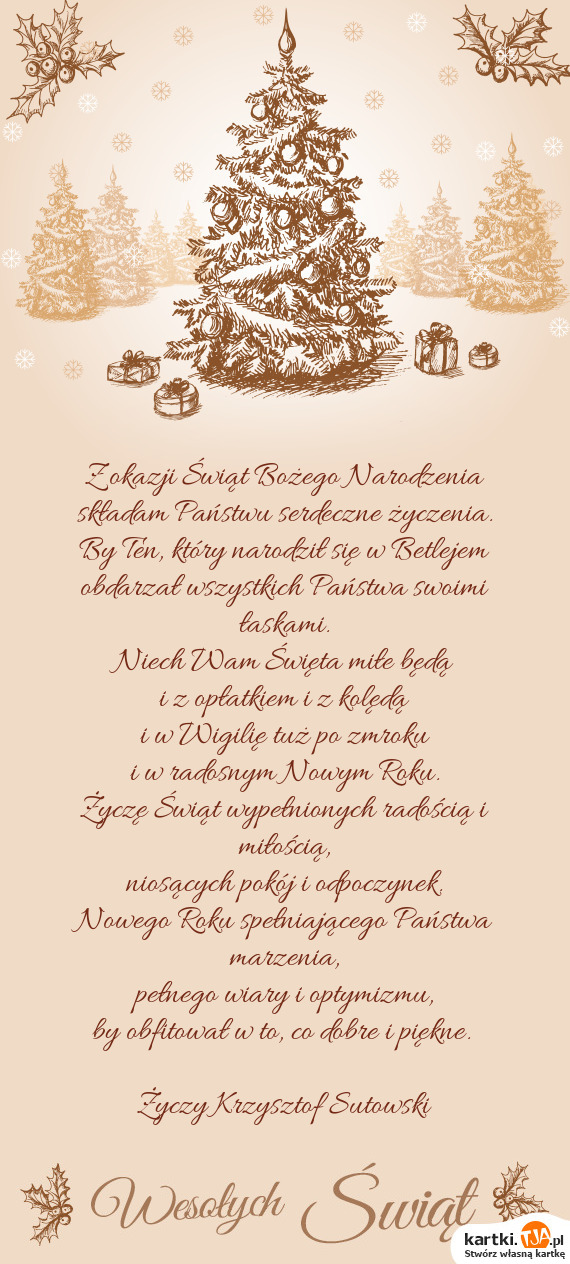 Z okazji Świąt Bożego Narodzenia
składam Państwu serdeczne życzenia.
By Ten, który narodził się w Betlejem
obdarzał wszystkich Państwa swoimi
łaskami.
Niech Wam Święta miłe będą
i z opłatkiem i z kolędą
i w Wigilię tuż po zmroku
i w radosnym Nowym Roku.
Życzę Świąt wypełnionych radością i
miłością,
niosących pokój i odpoczynek.
Nowego Roku spełniającego Państwa
marzenia,
pełnego wiary i optymizmu,
by obfitował w to, co dobre i piękne.
Życzy Krzysztof Sutowski
Wesołych Świąt
kartki.TJA.pl
Stwórz własną kartkę